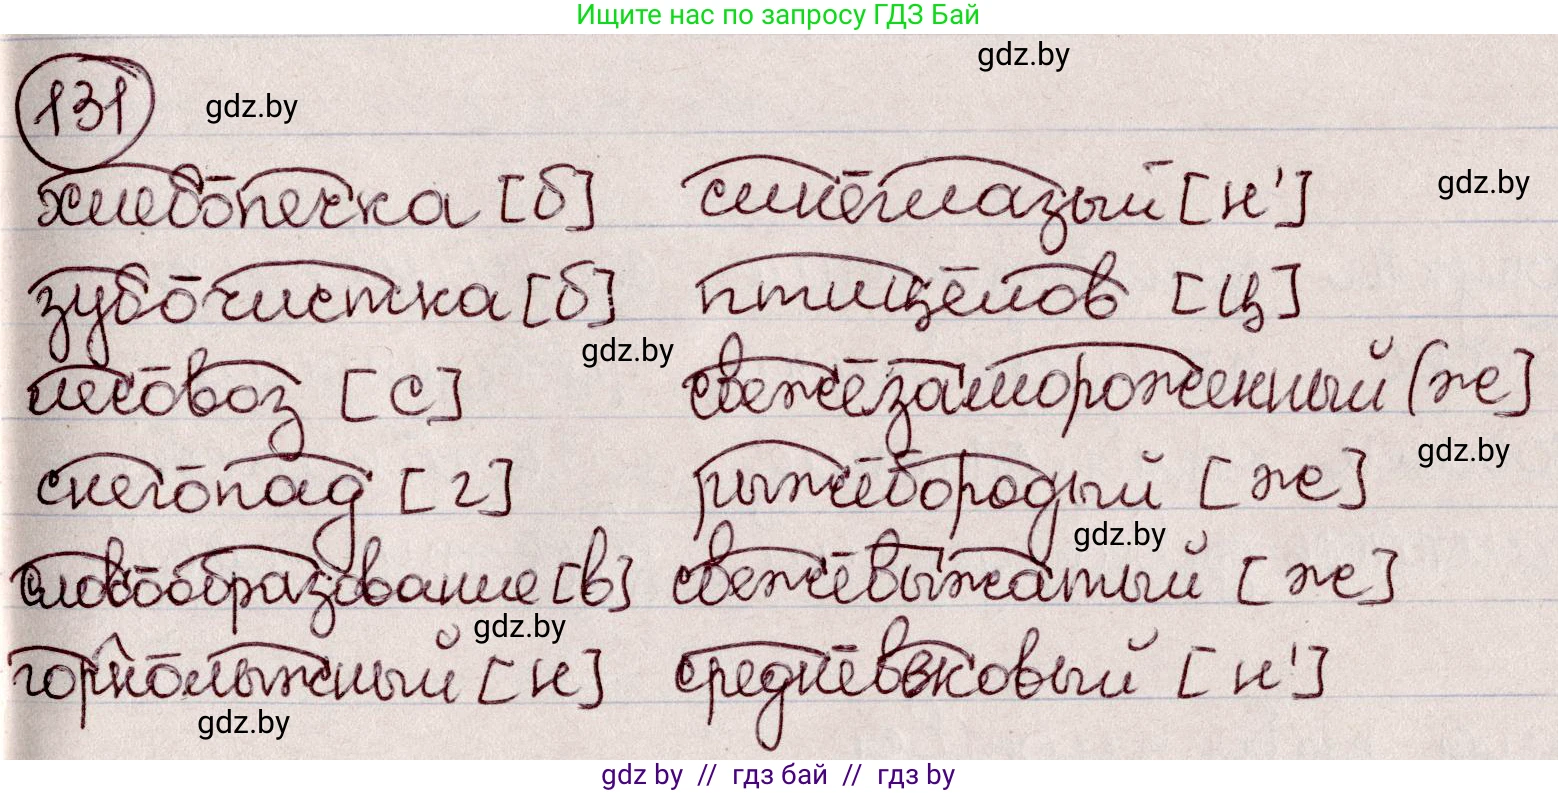 Ищите нас по запросу ГДЗ Бай
gdz.by
131 gdz.by
хлебопечка [б] синеглазый [н'] gdz.by
зубочистка [б] птицелов [ц]
gdz.by
лесовоз [с] свежезамороженный [ж]
gdz.by
снегопад [г] рыжебородый [ж]
gdz.by
словообразование [в] свежевыжатый [ж]
gdz.by
горнолыжный [н] средневековый [н']
gdz.by
gdz by // гдз бай // гдз by